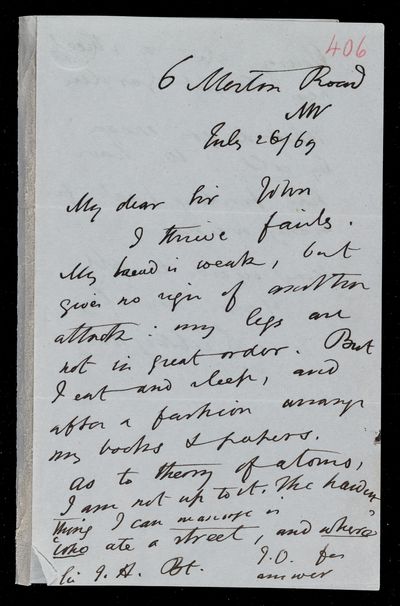 406
6 Merton Road
NW
July 26/69
My dear Sir John
I thrive fairly.
My head is weak, but
gives no sign of another
attack: my legs are
not in great order. But
I eat and sleep, and
after a fashion arrange
my books & papers.
As to theory of atoms,
I am not up to it. The hardest
thing I can manage is
who ate a street, and where
Sir J. H. Bt. I.O. for
answer